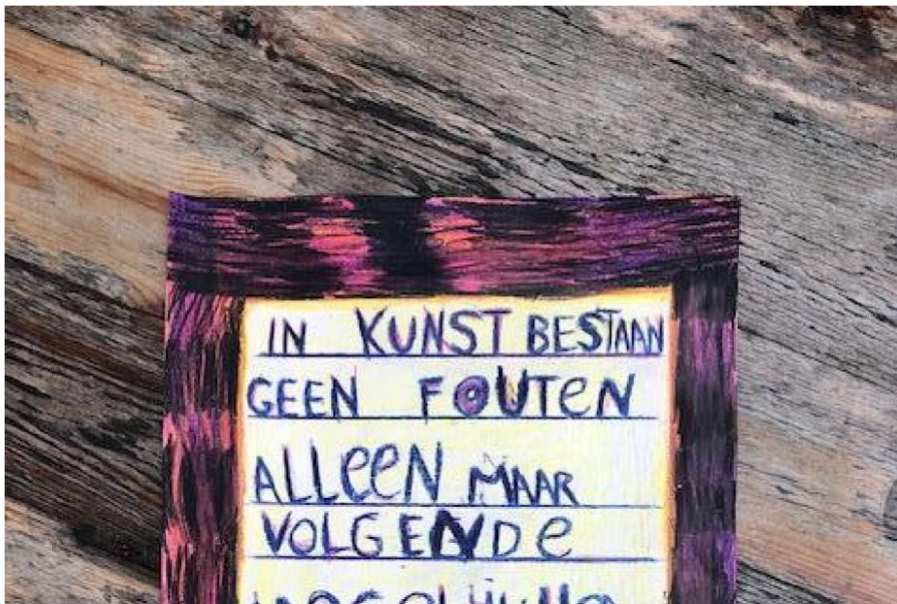 IN KUNST BESTAAN
GEEN FOUTeN
ALLeeN MAAR
VOLGENDe